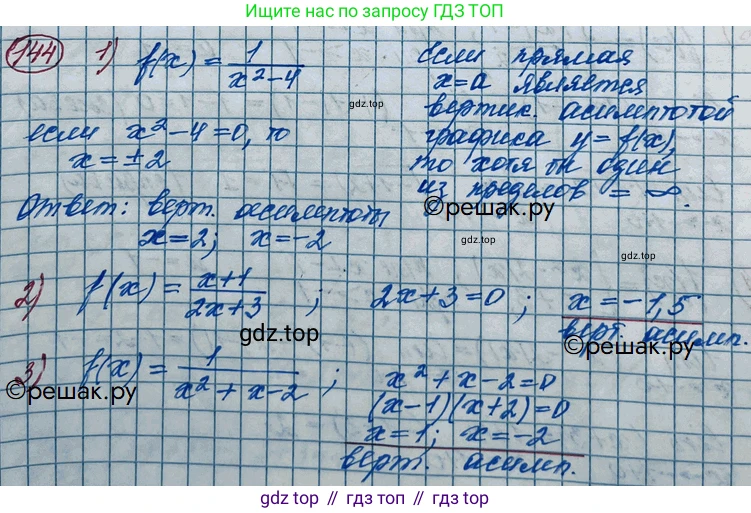 Самые быстрые ответы по запросу ГДЗ ТОП
144 1) f(x) = 1/(x²-4)
если прямая
x=a является
вертик. асимптотой
графика y=f(x),
то хотя бы один
из пределов = ∞.
gdz.top
если x²-4=0, то
x=±2
Ответ: верт. асимптоты
x=2; x=-2
©решак.ру
gdz.top
2) f(x) = (x+1)/(2x+3) ; 2x+3=0 ; x=-1,5
верт. асимп.
gdz.top
©решак.ру
3) f(x) = 1/(x²+x-2) ; x²+x-2=0
(x-1)(x+2)=0
x=1; x=-2
верт. асимп.
©решак.ру
gdz.top
gdz топ // гдз топ // гдз.top